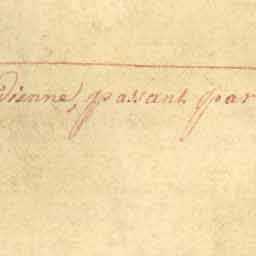 dienne, passant par